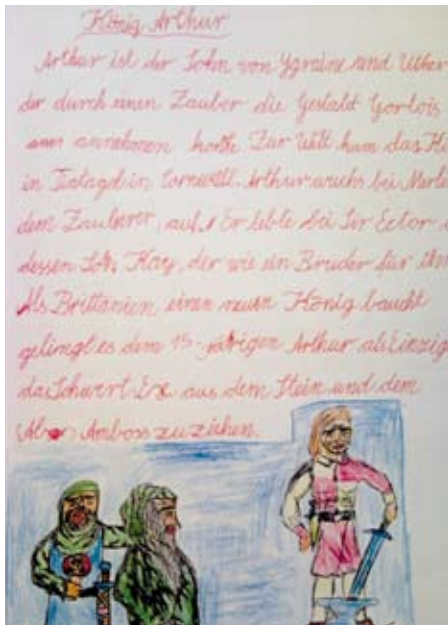 König Arthur
Arthur ist der Sohn von Ygraine und Uther
der durch einen Zauber die Gestald Gorlois
annehmen konte. Zur Welt kam das
in Tintagel in Cornwall. Arthur wuchs bei Merlin
dem Zauberer, auf. Er lebte bei Sir Ector
dessen Sohn Kay, der wie ein Bruder für
Als Brittanien einen neuen König baucht
gelingt es dem 15-jährigen Arthur als Einzig
das Schwert Ex aus dem Stein und dem
Amboss zu ziehen.